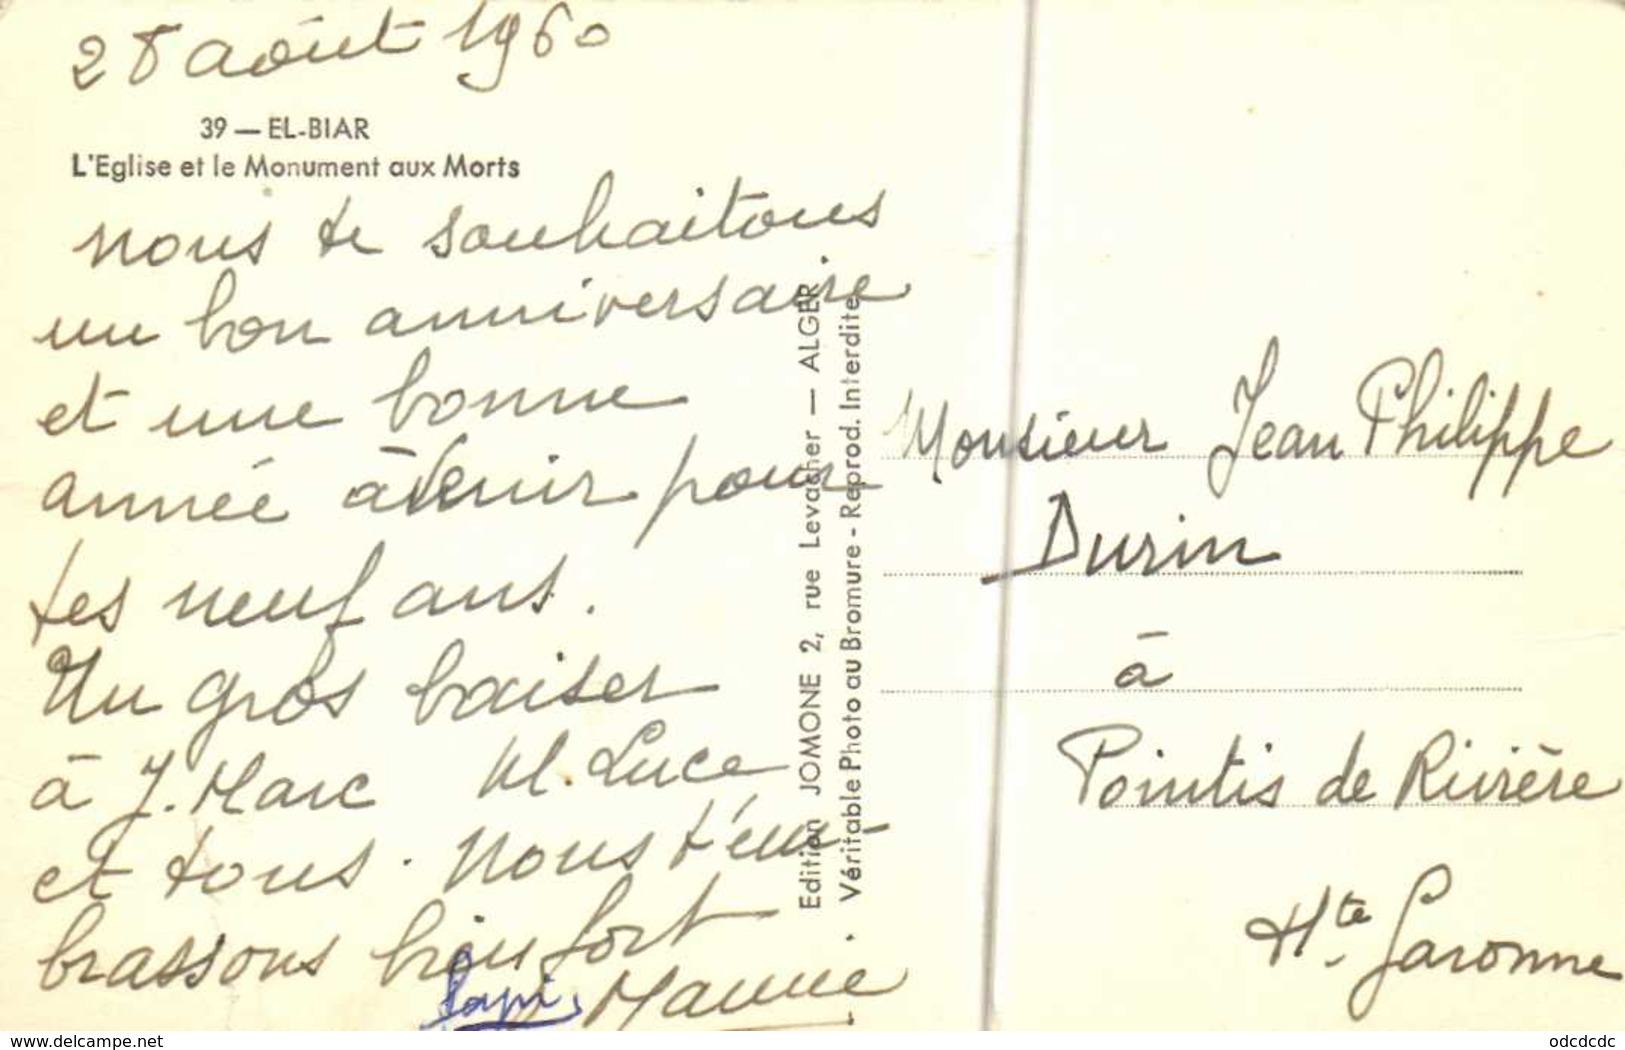 28 août 1960
39 — EL-BIAR
L'Eglise et le Monument aux Morts
nous te souhaitons
un bon anniversaire
et une bonne
année à venir pour
tes neuf ans.
Un gros baiser
à J. Marc M. Luce
et tous. Nous t'em-
brassons bien fort
Papi Manne
Edition JOMONE 2, rue Levacher — ALGER
Véritable Photo au Bromure - Reprod. Interdite
Monsieur Jean Philippe
Durin
à
Pointis de Rivière
Hte Garonne
www.delcampe.net
odcdcdc